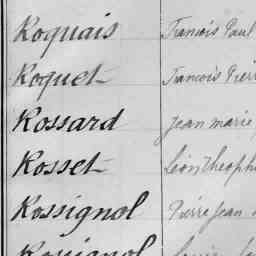 Roquais François Paul
Roquet François Pierre
Rossard Jean marie
Rosset Léon Theoph
Rossignol Pierre Jean
Rossignol Louis